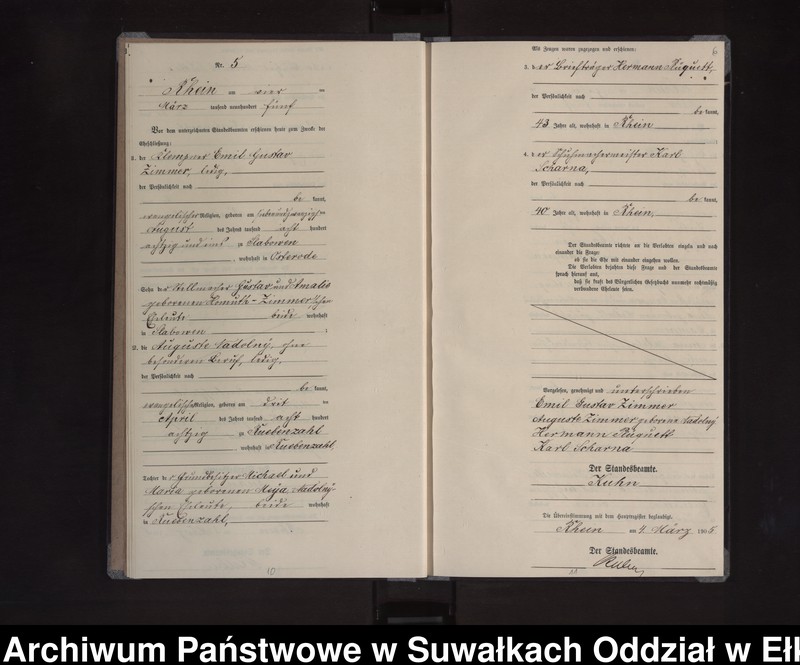 Nr. 5
Rhein am vier ten
März tausend neunhundert fünf
Vor dem unterzeichneten Standesbeamten erschienen heute zum Zwecke der
Eheschließung:
1. der Klempner Emil Gustav
Zimmer, ledig,
der Persönlichkeit nach
be kannt,
evangelischer Religion, geboren am
August des Jahres tausend acht hundert
achtzig und eins zu Slabowen
, wohnhaft in Osterode
Sohn des Stellmacher Gustav und Amalie
geborenen Zimmer'schen
Eheleute beide wohnhaft
in Slabowen ;
2. die Auguste Nadolny, ohne
besonderen Beruf, ledig,
der Persönlichkeit nach
be kannt,
evangelischer Religion, geboren am drit ten
April des Jahres tausend acht hundert
achtzig zu Kuebenzahl
wohnhaft in Kuebenzahl,
Tochter der Grundbesitzer Michael und
Maria geborenen Nadolny-
schen Eheleute, beide wohnhaft
in Kuebenzahl,
10
6
Als Zeugen waren zugezogen und erschienen:
3. der Briefträger Hermann Kuquett,
der Persönlichkeit nach
be kannt,
43 Jahre alt, wohnhaft in Rhein ;
4. der Schuhmachermeister Karl
Scharna,
der Persönlichkeit nach
be kannt,
40 Jahre alt, wohnhaft in Rhein,
Der Standesbeamte richtete an die Verlobten einzeln und nach
einander die Frage:
ob sie die Ehe mit einander eingehen wollen.
Die Verlobten bejahten diese Frage und der Standesbeamte
sprach hierauf aus,
daß sie kraft des Bürgerlichen Gesetzbuchs nunmehr rechtmäßig
verbundene Eheleute seien.
Vorgelesen, genehmigt und unterschrieben
Emil Gustav Zimmer
Auguste Zimmer geborene Nadolny
Hermann
Karl Scharna
Der Standesbeamte.
Kuhn
Die Übereinstimmung mit dem Hauptregister beglaubigt.
Rhein am 4. März 1905
Der Standesbeamte.
Kuhn
Archiwum Państwowe w Suwałkach Oddział w Ełk